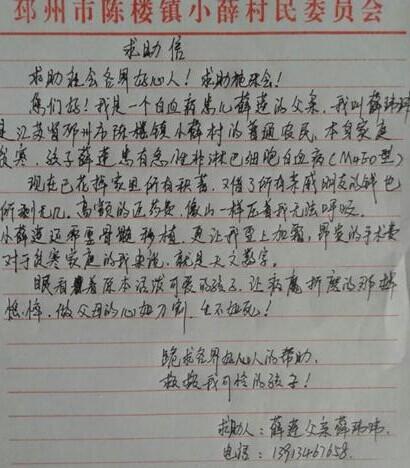 邳州市陈楼镇小薛村民委员会
求助信
求助社会各界好心人!求助慈善会!
您们好!我是一个白血病患儿薛莲的父亲,我叫薛玮玮
是江苏省邳州市陈楼镇小薛村的普通农民,本身家庭
贫寒,孩子薛莲患有急性非淋巴细胞白血病(M4E0型)
现在已花掉家里所有积蓄,又借了所有亲戚朋友的钱也
所剩无几,高额的医药费,像山一样压着我无法呼吸,
小薛莲还需要骨髓移植,更让我雪上加霜,昂贵的手术费
对于贫寒家庭的我来说,就是天文数字。
眼看着原本活泼可爱的孩子,让病魔折磨的那样
憔悴,做父母的心如刀割,生不如死!
跪求各界好心人的帮助,
救救我可怜的孩子!
求助人:薛莲父亲薛玮玮.
电话:13913467658.